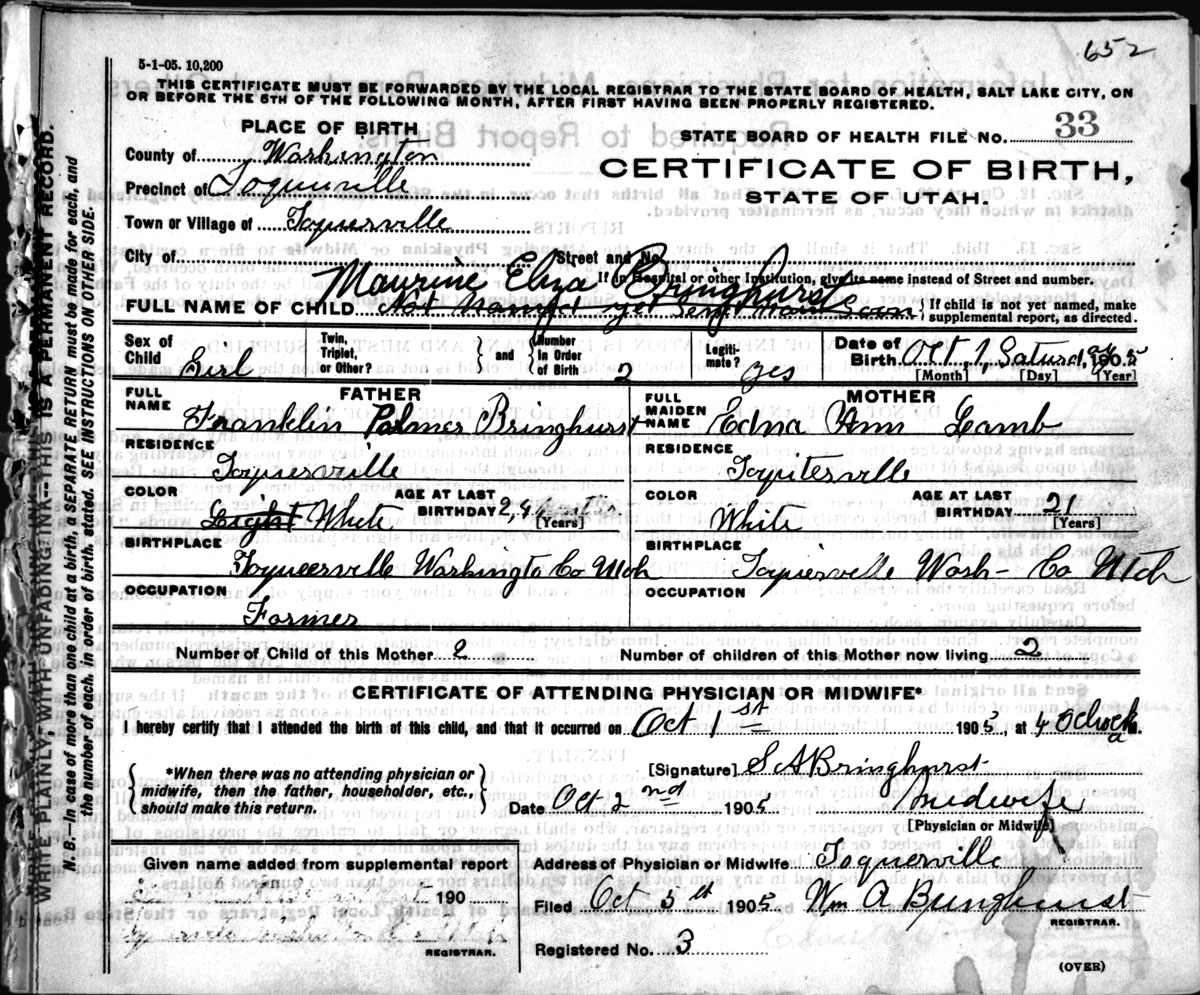 652
5-1-05. 10,200
THIS CERTIFICATE MUST BE FORWARDED BY THE LOCAL REGISTRAR TO THE STATE BOARD OF HEALTH, SALT LAKE CITY, ON
OR BEFORE THE 5TH OF THE FOLLOWING MONTH, AFTER FIRST HAVING BEEN PROPERLY REGISTERED.
PLACE OF BIRTH
STATE BOARD OF HEALTH FILE No. 33
County of Washington
CERTIFICATE OF BIRTH,
Precinct of Toquerville
STATE OF UTAH.
Town or Village of Toquerville
City of Street and No.
If in Hospital or other Institution, give its name instead of Street and number.
Maurine Eliza Bringhurst
FULL NAME OF CHILD Not Named yet
If child is not yet named, make
supplemental report, as directed.
Sex of Child Girl
Twin, Triplet, or Other? and Number in Order of Birth 2
Legitimate? yes
Date of Birth Oct 1, Saturday 1905
[Month] [Day] [Year]
FATHER
FULL NAME Franklin Palmer Bringhurst
MOTHER
FULL MAIDEN NAME Edna Ann Lamb
RESIDENCE Toquerville
RESIDENCE Toquterville
COLOR Light White
AGE AT LAST BIRTHDAY 2,9 [Years]
COLOR White
AGE AT LAST BIRTHDAY 21 [Years]
BIRTHPLACE Toqueerville Washington Co Utah
BIRTHPLACE Toquerville Wash- Co Utah
OCCUPATION Farmer
OCCUPATION
Number of Child of this Mother 2
Number of children of this Mother now living 2
CERTIFICATE OF ATTENDING PHYSICIAN OR MIDWIFE*
I hereby certify that I attended the birth of this child, and that it occurred on Oct 1st 1905, at 4 Oclock a M.
*When there was no attending physician or
midwife, then the father, householder, etc.,
should make this return.
[Signature] S A Bringhurst
Date Oct 2nd 1905 Midwife
[Physician or Midwife]
Given name added from supplemental report
190
REGISTRAR.
Address of Physician or Midwife Toquerville
Filed Oct 5th 1905 Wm A Bringhurst
REGISTRAR.
Registered No. 3
(OVER)
WRITE PLAINLY, WITH UNFADING INK--THIS IS A PERMANENT RECORD.
N. B.--In case of more than one child at a birth, a SEPARATE RETURN must be made for each, and
the number of each, in order of birth, stated. SEE INSTRUCTIONS ON OTHER SIDE.